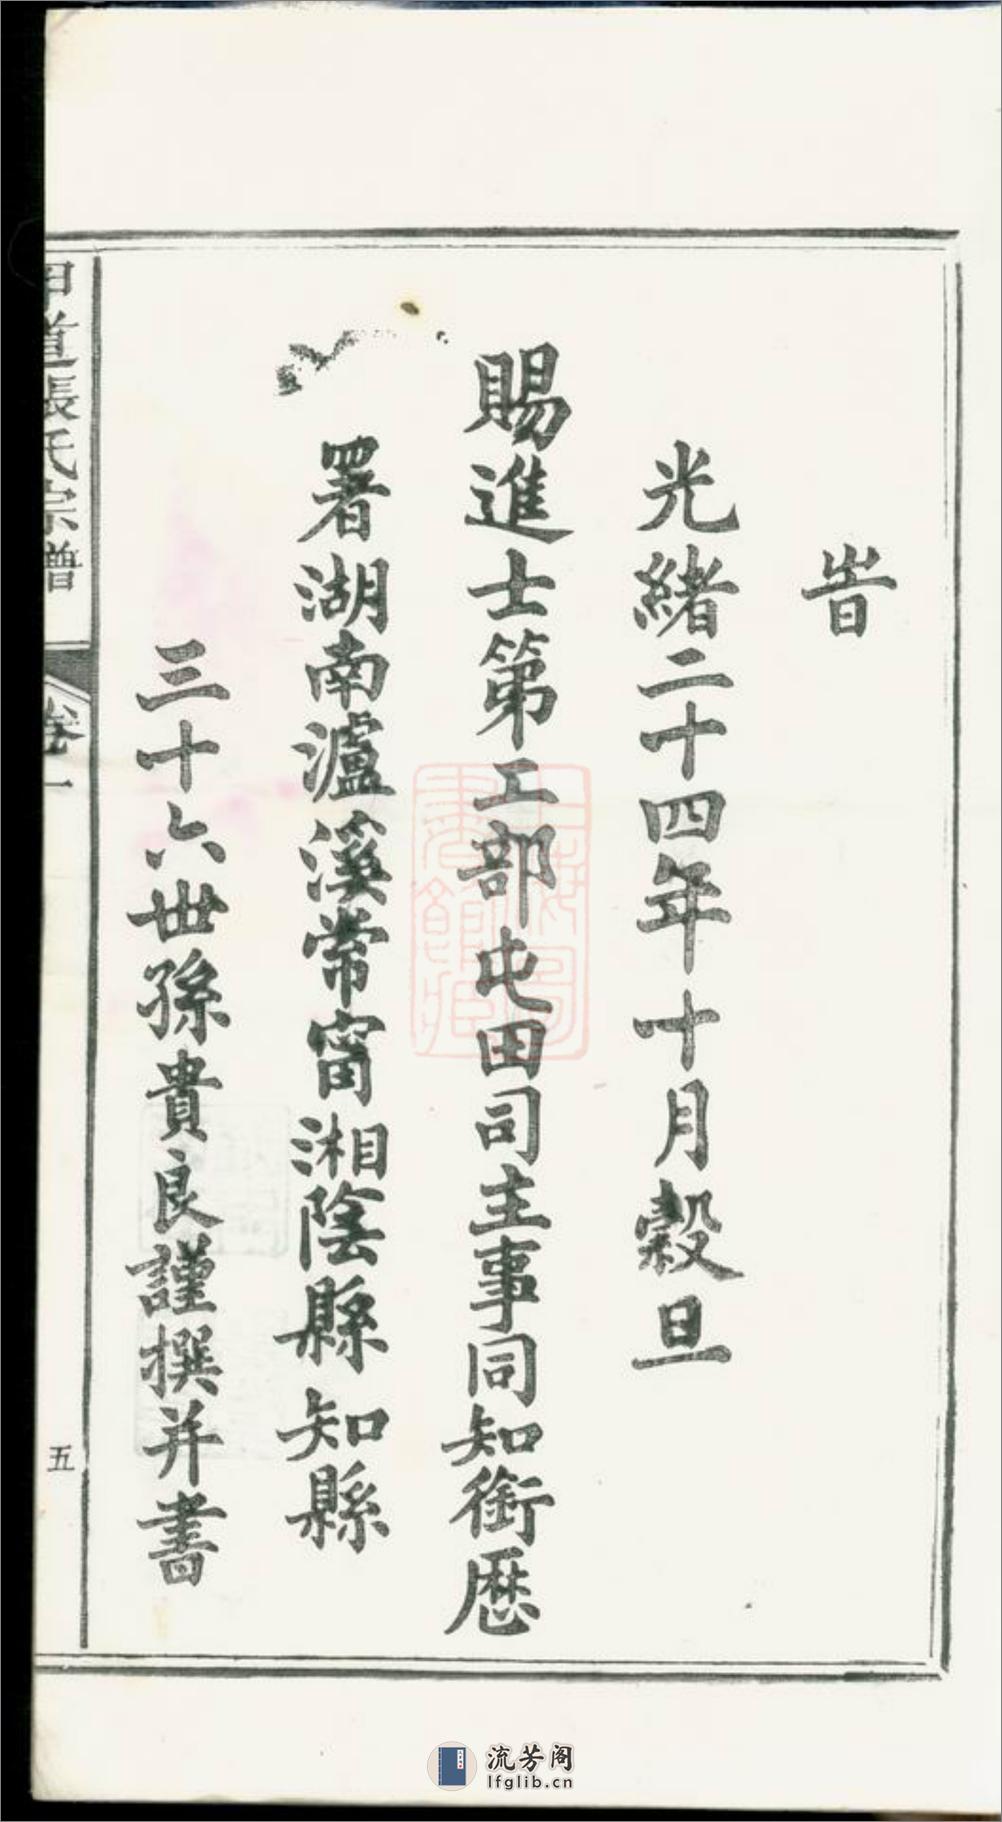 旹
光緒二十四年十月穀旦
賜進士第工部屯田司主事同知銜歷
署湖南瀘溪常甯湘陰縣知縣
三十六世孫貴良謹撰并書
甲道張氏宗譜
卷一
五
流芳阁
lfglib.cn